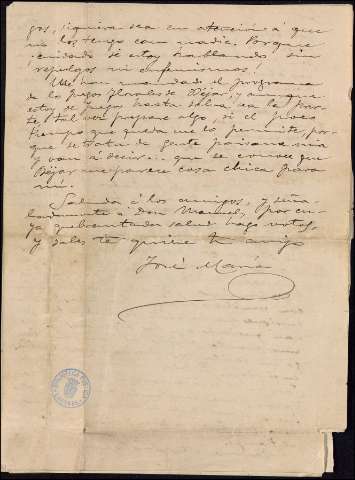 gos, ¡siquiera sea en atención á que
no los tengo con nadie. Porque
¡cuidado si estoy hablando sin
repulgos ni eufemismos!
Me han mandado el programa
de los Juegos florales de Béjar, y aunque
estoy de Juegos hasta salva sea la par-
te, tal vez prepare algo, si el poco
tiempo que queda me lo permite, por-
que se trata de gente paisana mía
y van á decir... que se conoce que
Béjar me parece cosa chica para
mí.
Saluda á los amigos, y seña-
ladamente á Don Manuel, por cu-
ya quebrantada salud hago votos,
y sabes te quiere tu amigo
José María
BIBLIOTECA PÚBLICA